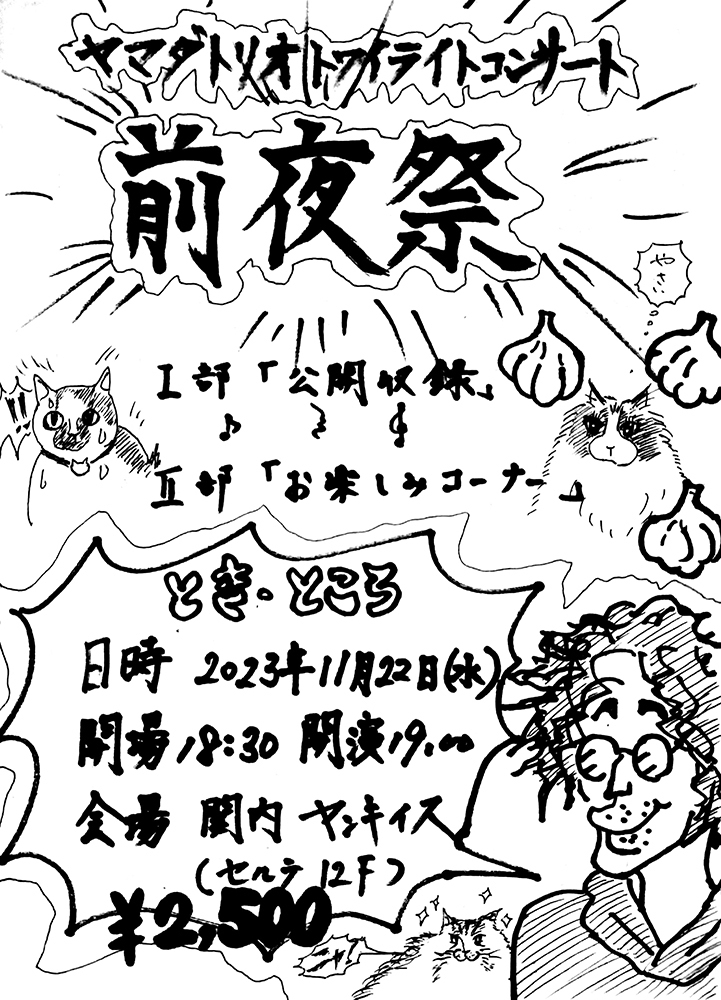 ヤマダトリオ トワイライトコンサート
前夜祭
やさい
I部「公開収録」
II部「お楽しみコーナー」
!!
とき・ところ
日時 2023年11月22日(水)
開場18:30 開演19:00
会場 関内 ヤンキイス
(セルテ12F)
¥2,500
ニャ!